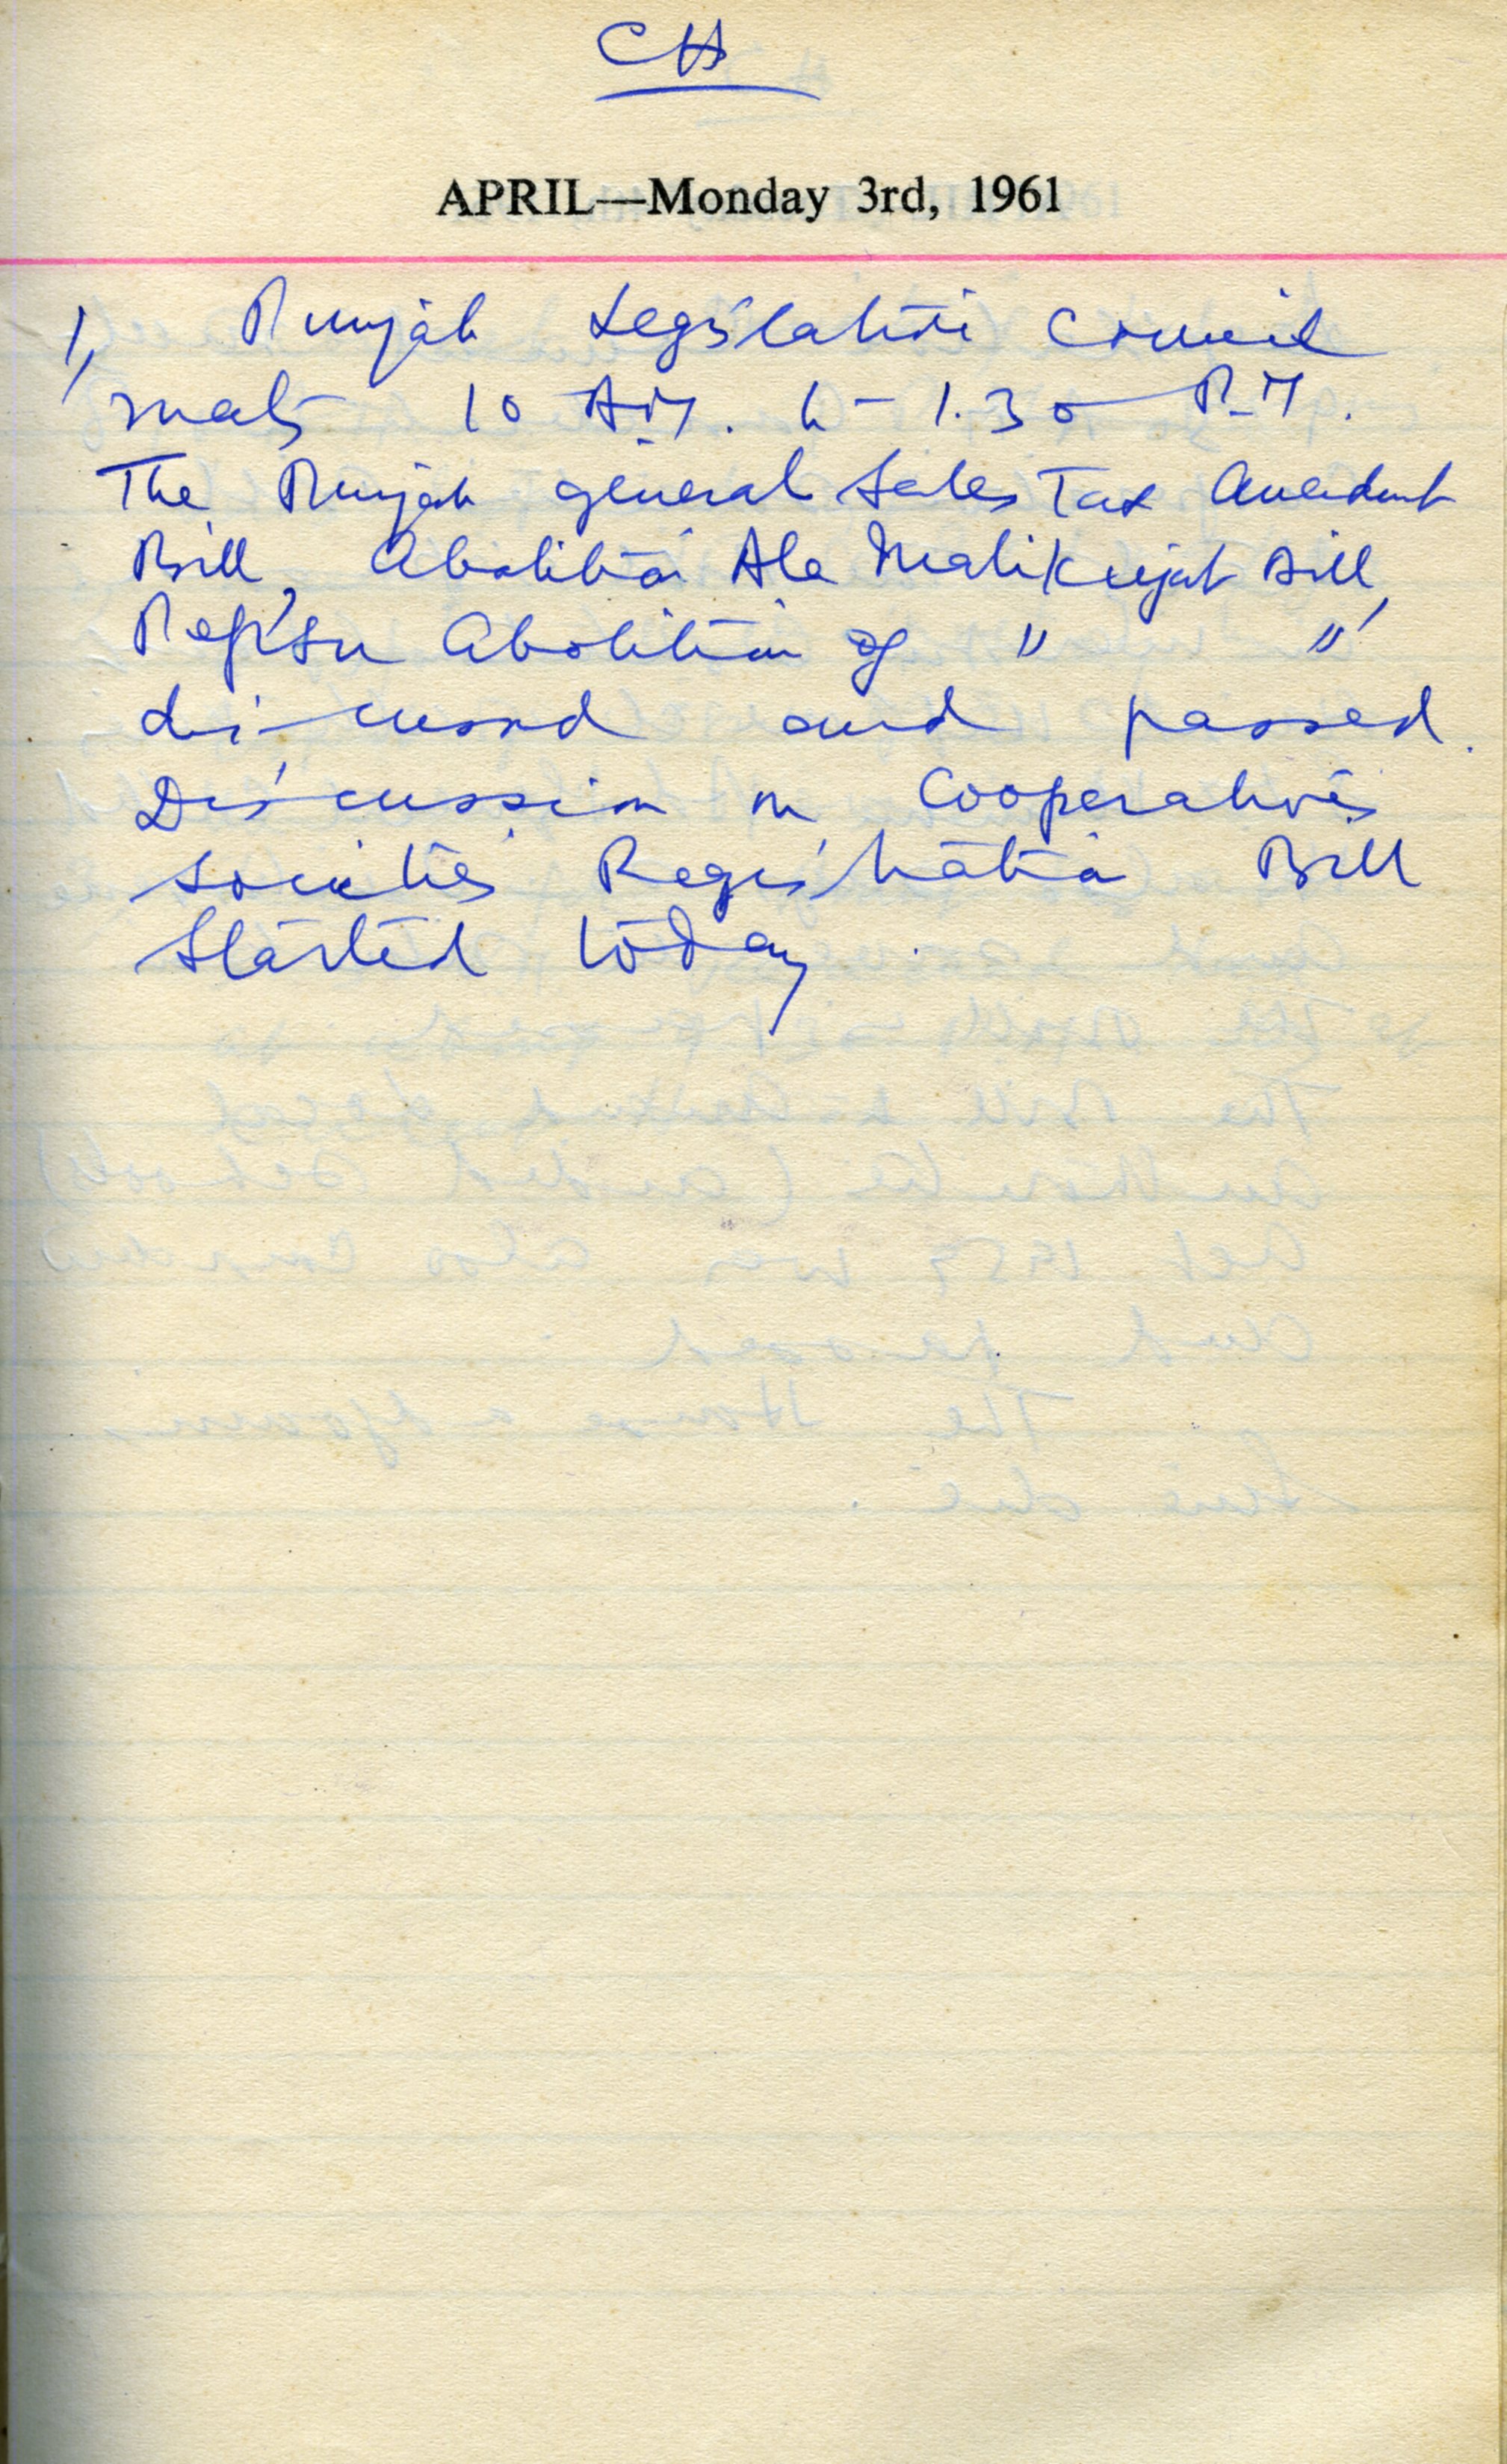 CH
APRIL—Monday 3rd, 1961
1, Punjab Legislative Council
meets 10 A.M. to 1.30 P.M.
The Punjab general Sales Tax Amendment
Bill, Abolition Ala Malikiyat Bill,
Pepsu Abolition of " "
discussed and passed.
Discussion on Cooperative
Societies Registration Bill
Started today.